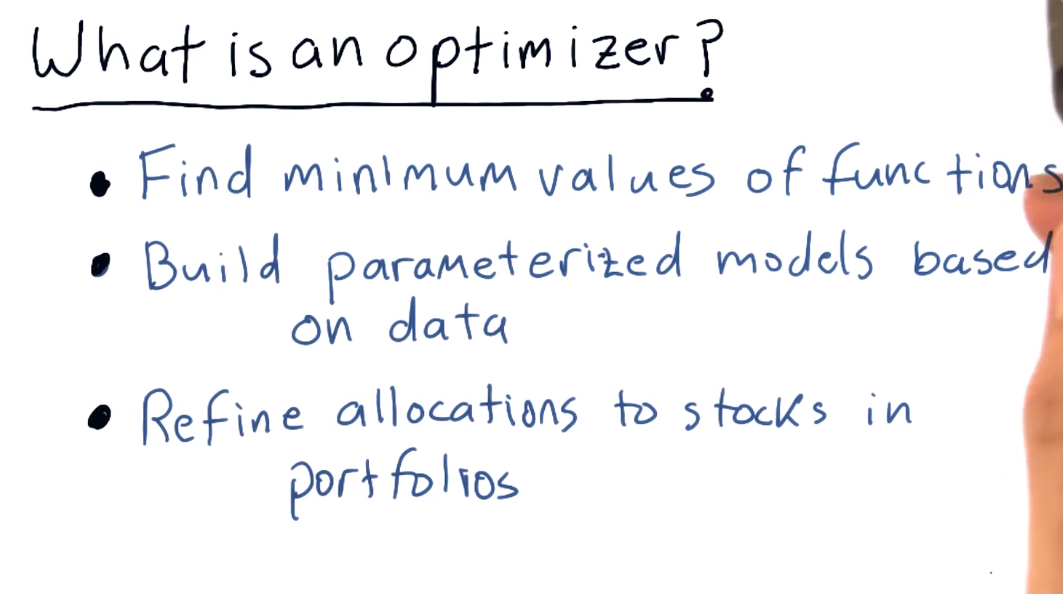 What is an optimizer?
• Find minimum values of functions
• Build parameterized models based
on data
• Refine allocations to stocks in
portfolios